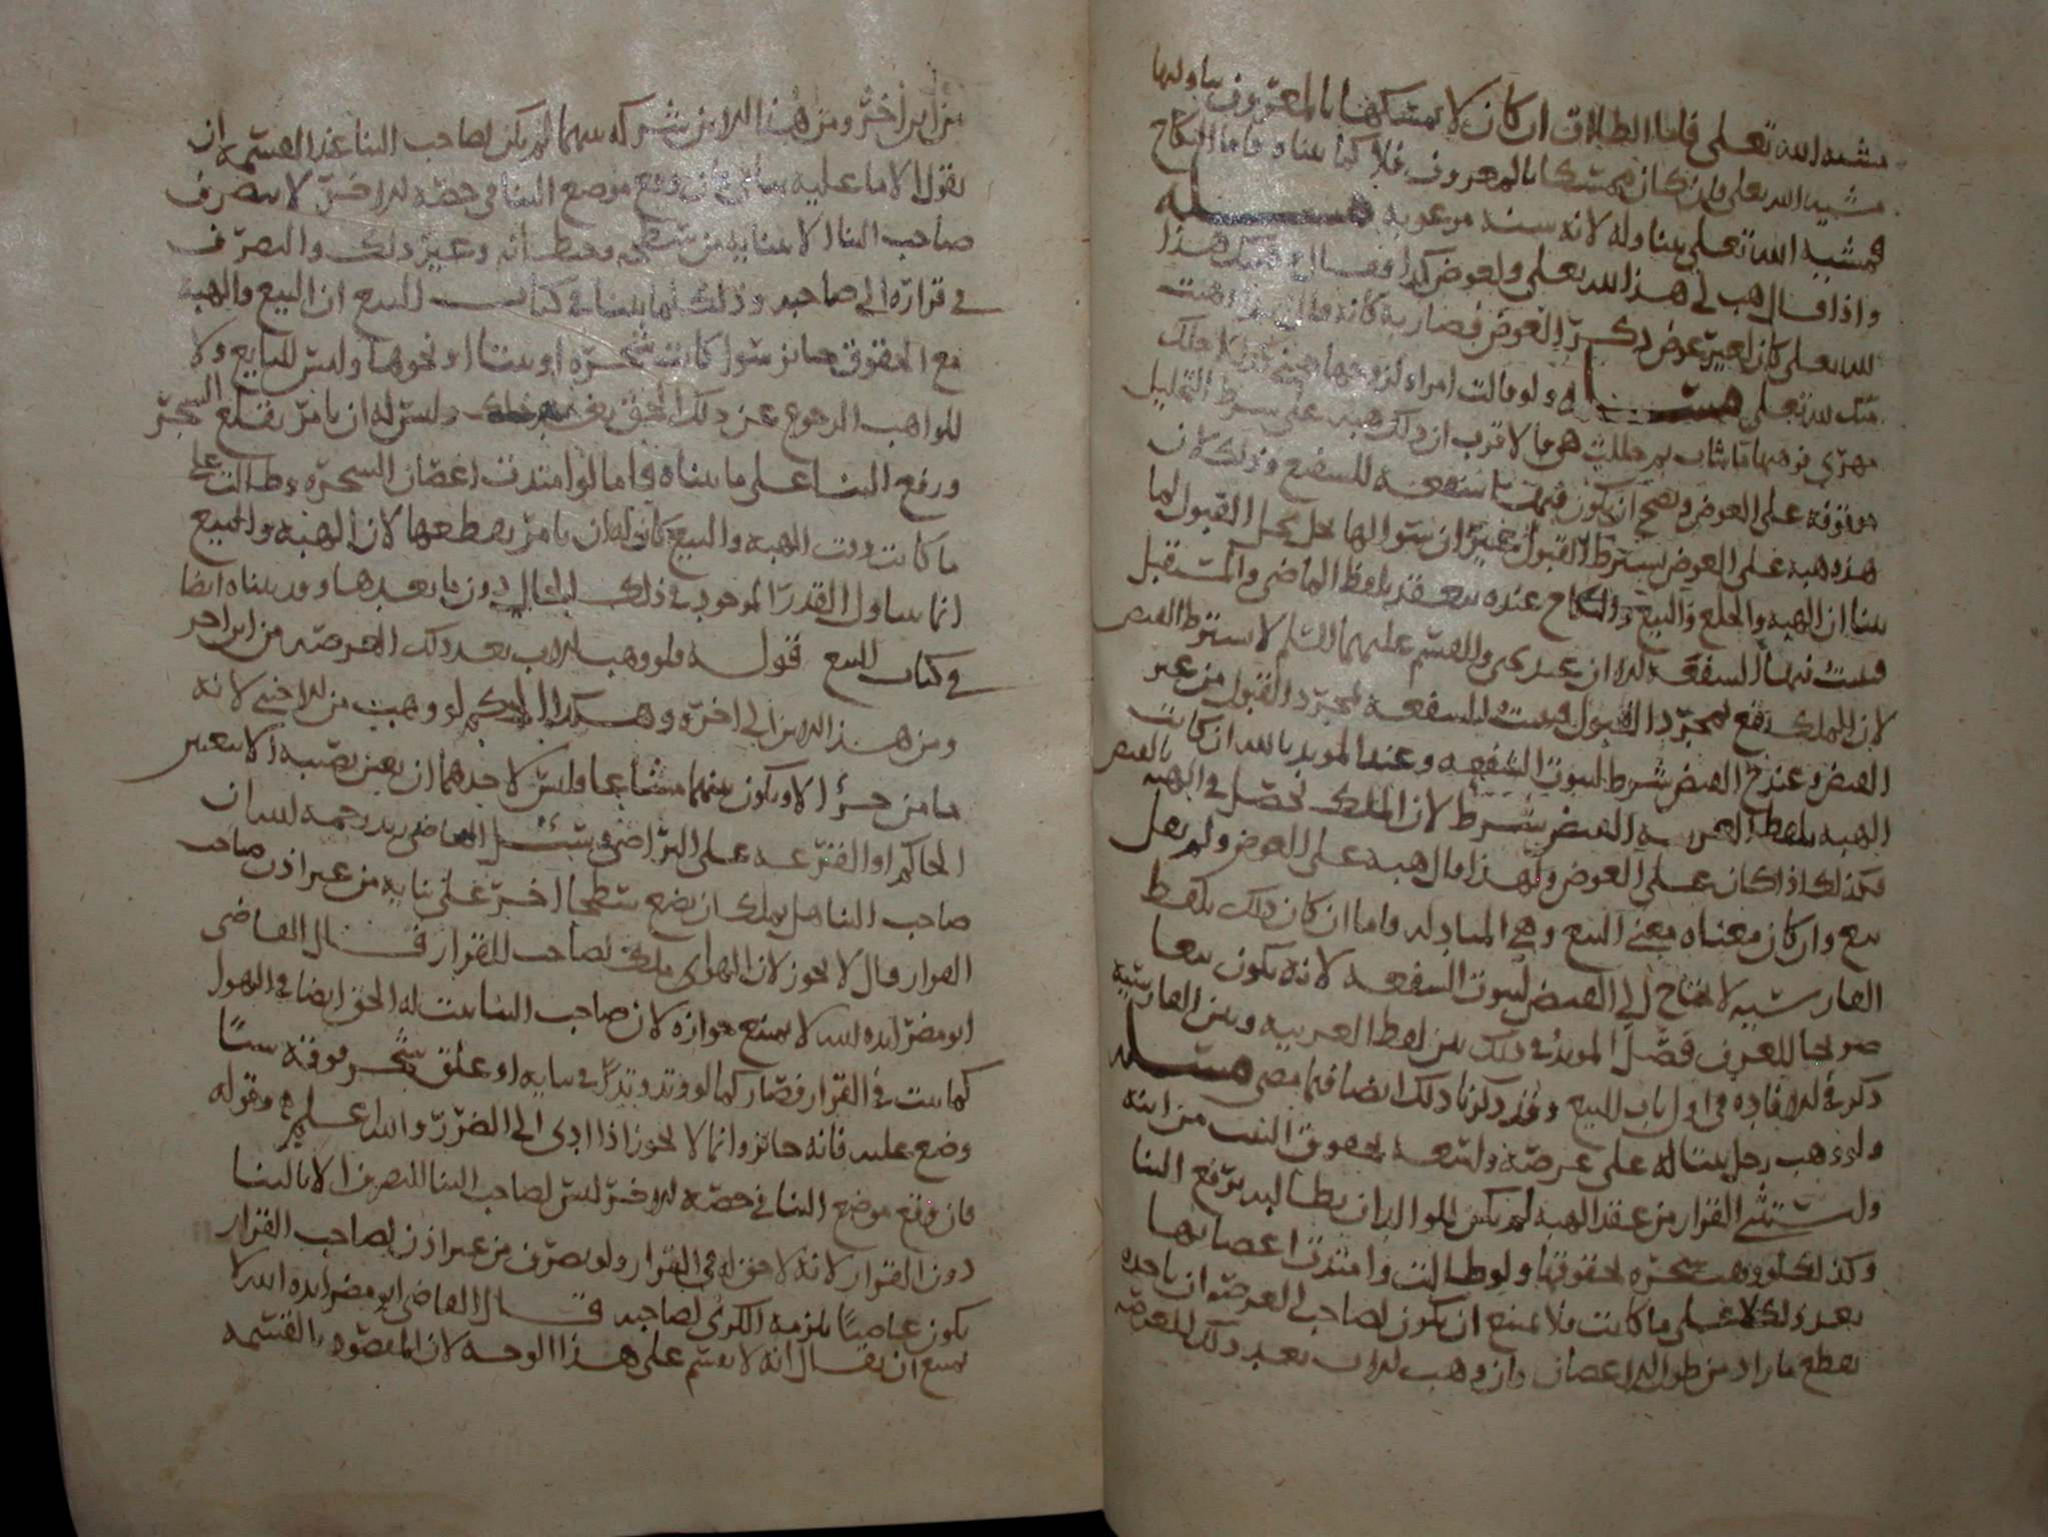 مشيه الله تعلى فاما الطلاق ان كان لا يمسكها بالمعروف تناولها
مشيه الله تعلى وان كان يمسكها بالمعروف فلا كما بينا واما النكاح
فمشيه الله تعلى تناوله لانه سنة مرغوبة مسئله
واذا قال هب لى هذا لله تعلى ولعوض كذا فقال وهبتك هذا
لله تعلى كان لغير عوض ذكر العوض فصار به كانه قال وهبت
منك لله تعلى مسئله ولو قالت امراه لزوجها
مهرى فوهبها ما شاب ثم طلبت هى ما الاقرب ان ذلك هبه على شرط التحليل
موقوفة على العوض ويصح ان يكون فيها شفعه للشفيع وذلك لان
هذه هبه على العوض بشرط القبول غير ان سوالها يحل محل القبول لما
بينا ان الهبه والخلع والبيع والنكاح عنده ينعقد بلفظ الماضى والمستقبل
فيثبت فيها الشفعه الا ان عند يحيى والقسم عليهما السلم لا يشترط القبض
لان الملك يقع بمجرد القبول فيثبت الشفعه بمجرد القبول من غير
القبض وعند ح القبض شرط لثبوت الشفعه وعند المويد بالله ان كانت
الهبه بلفظ العربيه القبض شرط لان الملك يحصل فى الهبه بالقبض
فكذلك اذا كان على العوض ولهذا قال هبه على العوض ولم يقل
بيع وان كان معناه معنى البيع وهى المبادله فاما ان كان ذلك بلفظ
الفارسيه لا يحتاج الى القبض لثبوت الشفعه لانه يكون بيعا
صريحا للعرف فصل المويد فى ذلك بين لفظ العربيه وبين الفارسيه
ذكره فى الافاده فى اول باب البيع وقد ذكرنا ذلك ايضا فيما مضى مسئله
ولو وهب رجل بيتا له على عرصة ولسعه بحقوق البيت من ابنه
ولم يستثنى القرار من عقد الهبه لم يكن للوالد ان يطالبه برفع البنا
وكذلك لو وهبت شجره بحقوقها ولو طالت وامتدت اغصانها
بعد ذلك على ما كانت فلا يمنع ان يكون لصاحب العرصه ان ياخذه
بقطع ما زاد من طول الاغصان وان وهب الاب بعد ذلك العرصه
من ابن اخر ومن هذا الابن شركه بينهما لم يكن لصاحب البنا عند القسمه ان
يقول الا ما عليه بناى فان وقع موضع البنا فى حصه الاخر لا يتصرف
صاحب البنا الا ببنايه من سطحه وحيطانه وغير ذلك والتصرف
فى قراره الى صاحبه وذلك لما بينا فى كتاب البيع ان البيع والهبه
مع الحقوق جائز سوا كانت شجره او بيتا او نحوها وليس للبايع ولا
للواهب الرجوع عن ذلك الحق بغير ذلك وليس له ان يامر بقلع الشجر
ورفع البنا على ما بيناه فاما لو امتدت اغصان الشجره وطالت على
ما كانت وقت الهبه والبيع كان له ان يامر بقطعها لان الهبه والبيع
انما يتناول القدر الموجود فى ذلك الحال دون ما بعدها وقد بيناه ايضا
فى كتاب البيع قوله ولو وهب الاب بعد ذلك العرصه من ابن اخر
ومن هذا الابن الى اخره وهكذا الحكم لو وهبت من الاجنبى لانه
ما من جزء الا ويكون بينهما مشاعا وليس لاحدهما ان يعين نصيبه الا بتعيين
الحاكم او القرعه على التراضى وسئل القاضى زيد رحمه الله ان
صاحب البنا هل يملك ان يضع سطحا اخر على بنايه من غير اذن صاحب
القرار قال لا يجوز لان الهوا ملك لصاحب القرار قال القاضى
ابو مضر ايده الله لا يمنع جوازه لان صاحب البنا يثبت له الحق ايضا فى الهوا
كما يثبت فى القرار فصار كما لو وتد وتدا فى بنايه او علق شجر فوقه شيئا
وضع عليه فانه جائز وانما لا يجوز اذا ادى الى الضرر والله اعلم وقوله
فان وقع موضع البنا فى حصه الاخر ليس لصاحب البنا التصرف الا بالبنا
دون القرار لانه لا حق له فى القرار ولو تصرف من غير اذن لصاحب القرار
يكون غاصبا يلزمه الكرى لصاحبه قال القاضى ابو مضر ايده الله لا
يمنع ان يقال انه لا يقسم على هذا الوجه لان المقصود بالقسمه